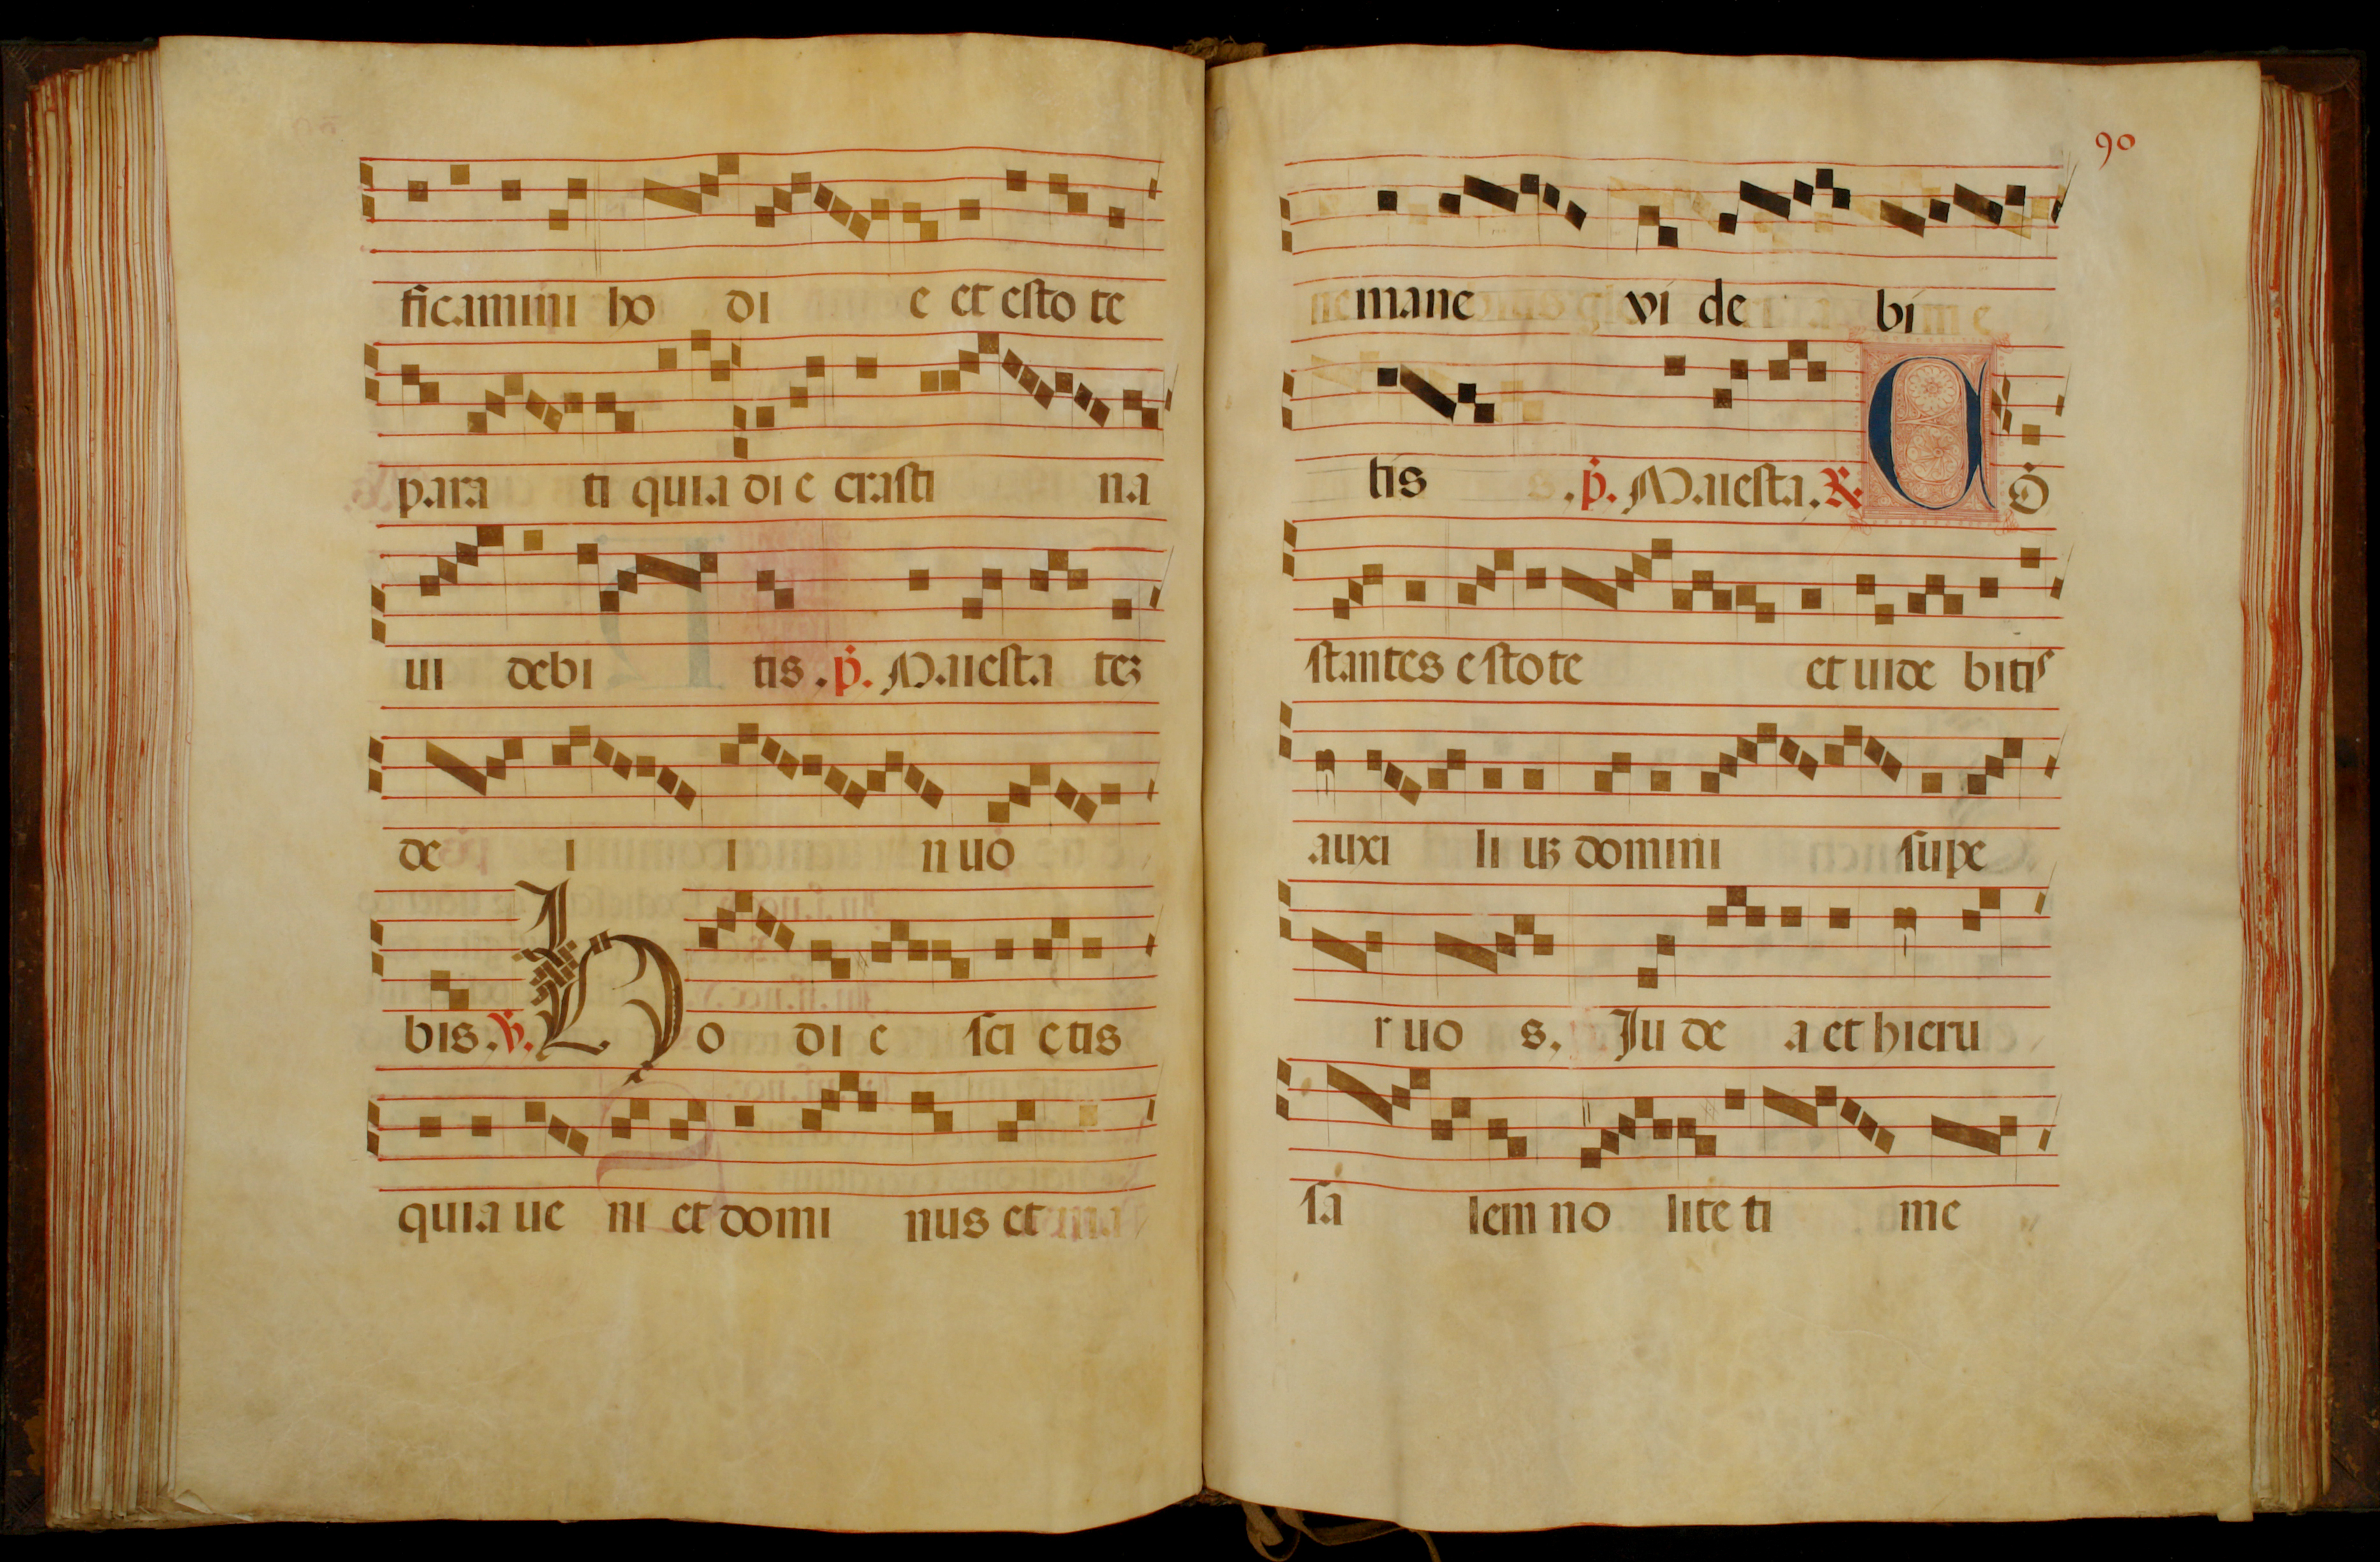 ficamini ho di e et esto te
para ti quia di e crasti na
ui debi tis. p. Maiesta teʒ
de i i nuo
bis. ℣. Ho di e sci etis
quia ue ni et domi nus et ma
90
ne mane vi de bi
tis s. p. Maiesta. ℟. Cō
stantes estote et uide bitis
auxi li uʒ domini supe
r uo s. Ju de a et hieru
sa lem no lite ti me